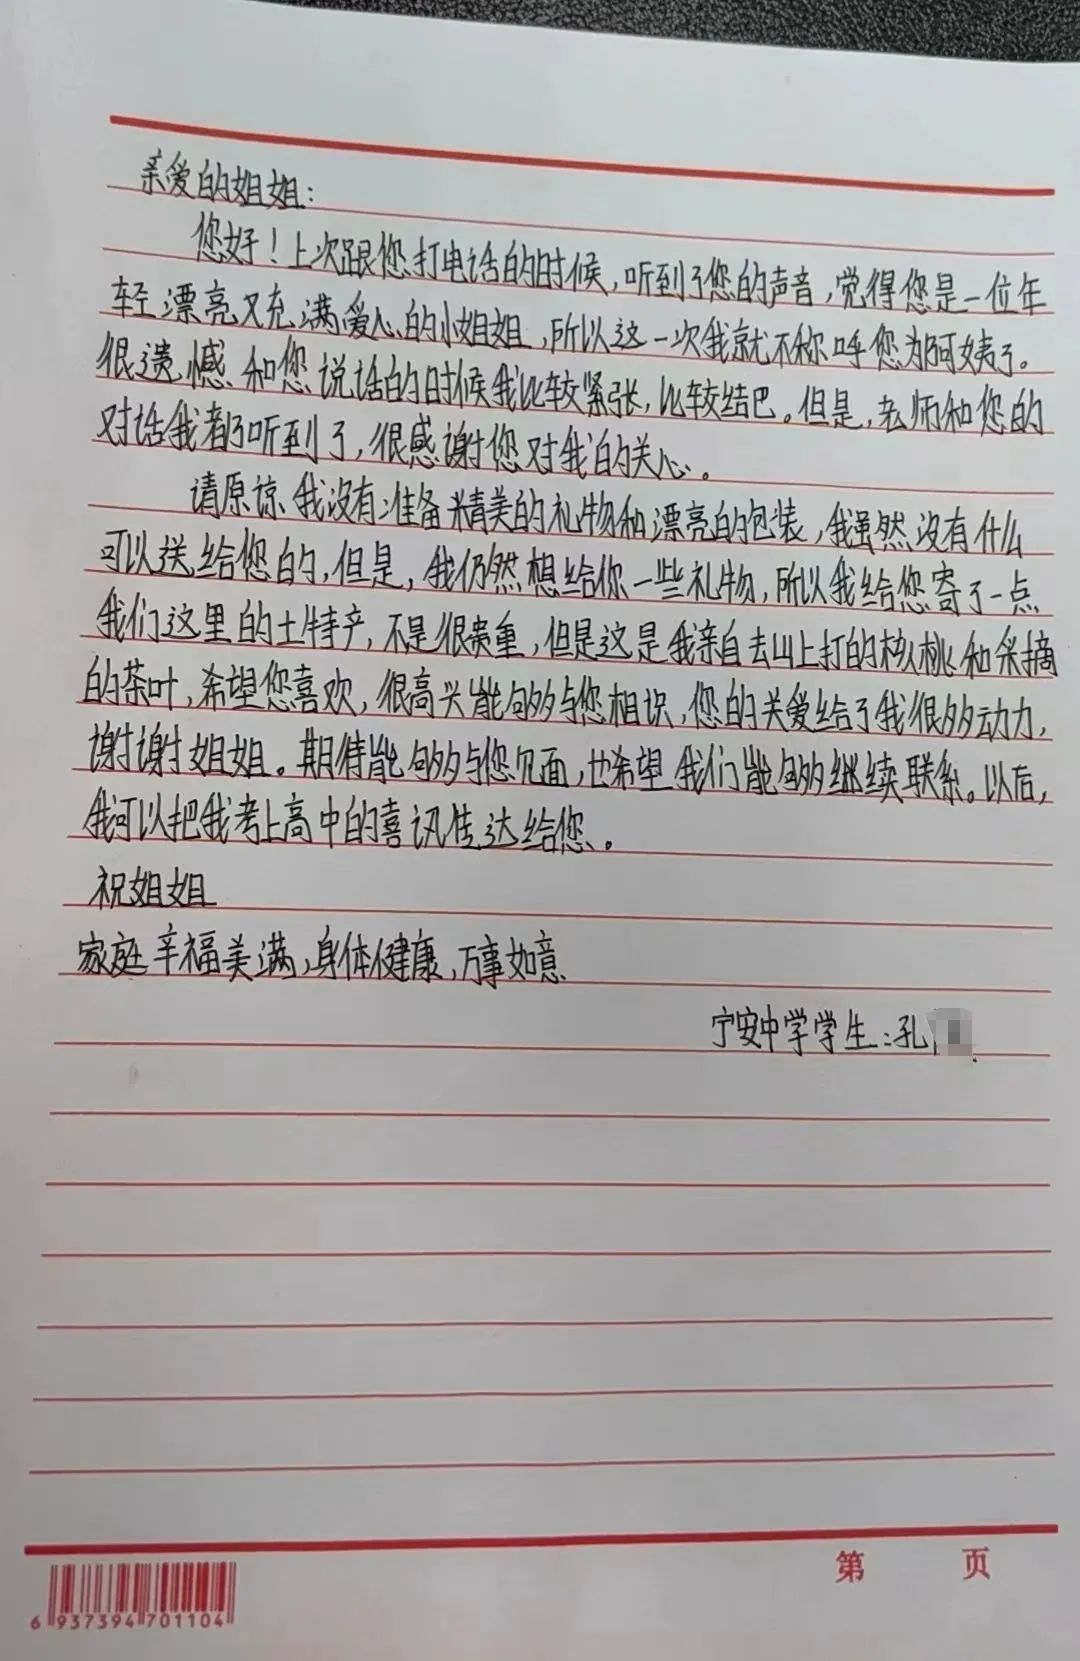 亲爱的姐姐：
您好！上次跟您打电话的时候，听到了您的声音，觉得您是一位年
轻漂亮又充满爱心的小姐姐，所以这一次我就不称呼您为阿姨了。
很遗憾和您说话的时候我比较紧张，比较结巴。但是，老师和您的
对话我都听到了，很感谢您对我的关心。
请原谅我没有准备精美的礼物和漂亮的包装，我虽然没有什么
可以送给您的，但是，我仍然想给你一些礼物，所以我给您寄了一点
我们这里的土特产，不是很贵重，但是这是我亲自去山上打的核桃和采摘
的茶叶，希望您喜欢，很高兴能够与您相识，您的关爱给了我很多动力，
谢谢姐姐。期待能够与您见面，也希望我们能够继续联系。以后，
我可以把我考上高中的喜讯传达给您。
祝姐姐
家庭幸福美满，身体健康，万事如意
宁安中学学生：孔
第 页
6 937394 701104